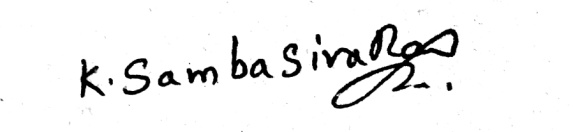 K. Sambasiva Rao